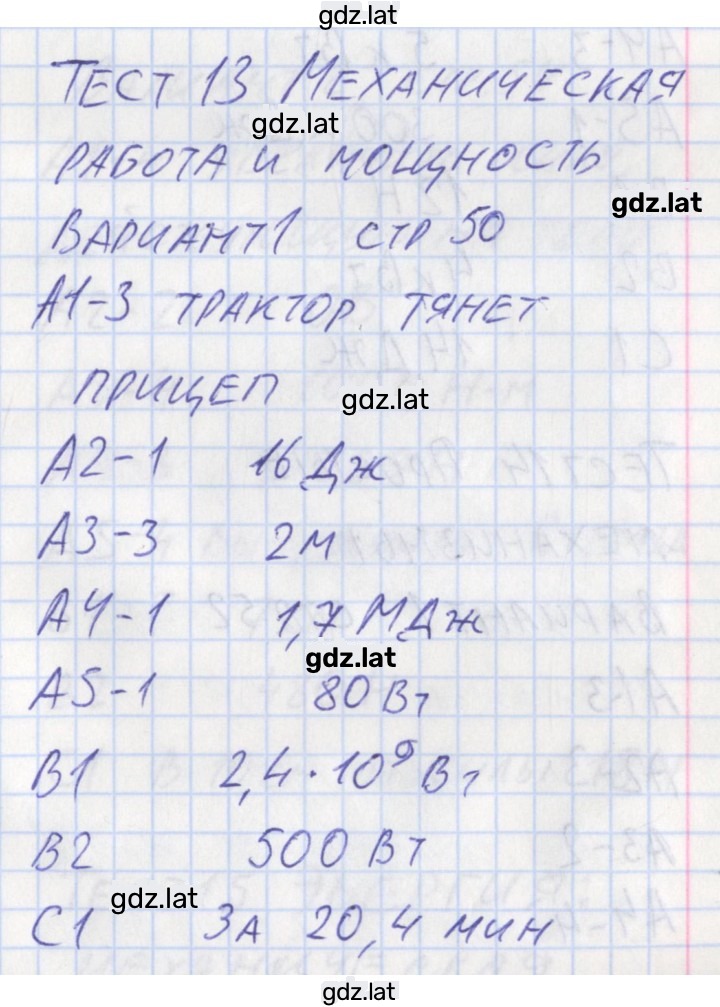 gdz.lat
ТЕСТ 13 МЕХАНИЧЕСКАЯ
gdz.lat
РАБОТА И МОЩНОСТЬ
gdz.lat
ВАРИАНТ 1 СТР 50
А1-3 ТРАКТОР ТЯНЕТ
ПРИЦЕП
gdz.lat
А2-1 16 Дж
А3-3 2м
А4-1 1,7 МДж
gdz.lat
А5-1 80 Вт
В1 2,4·10⁹ Вт
В2 500 Вт
gdz.lat
С1 ЗА 20,4 МИН
gdz.lat